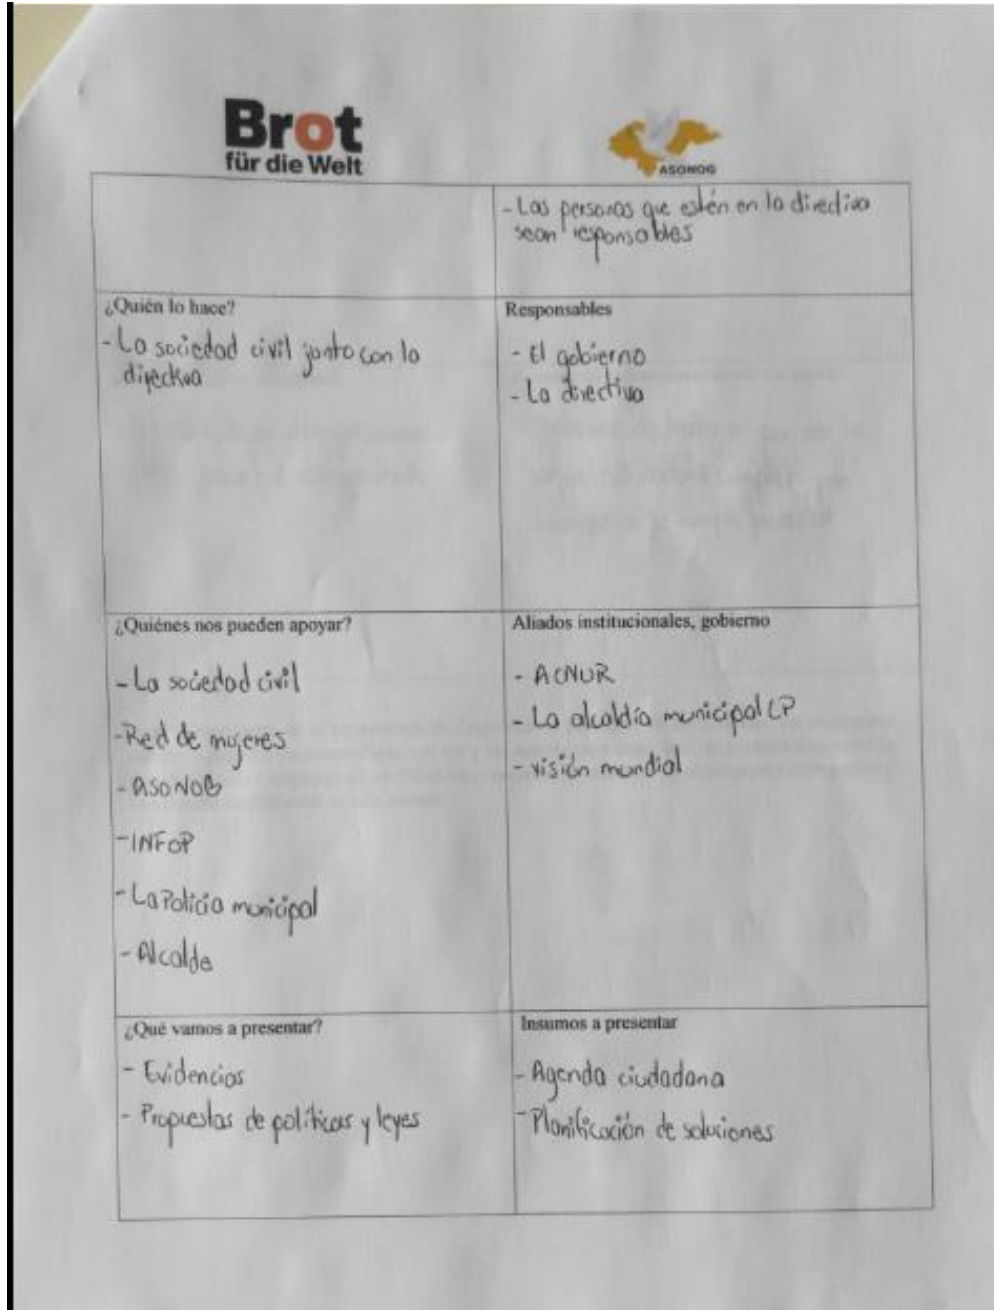 Brot
für die Welt
ASONOG
- Las personas que estén en la directiva
sean responsables
¿Quién lo hace?
- La sociedad civil junto con la
directiva
Responsables
- El gobierno
- La directiva
¿Quiénes nos pueden apoyar?
- La sociedad civil
- Red de mujeres
- ASONOG
- INFOP
- La Policia municipal
- Alcalde
Aliados institucionales, gobierno
- ACNUR
- La alcaldía municipal LP
- visión mundial
¿Qué vamos a presentar?
- Evidencias
- Propuestas de políticas y leyes
Insumos a presentar
- Agenda ciudadana
- Planificación de soluciones